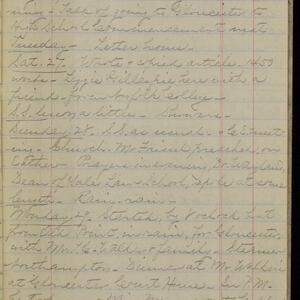 ning - Talk of going to Gloucester to
High School Commencement next
Tuesday - Letter home.
Sat. 27. Wrote + article. 1450
words - Lizzie Gillespie here with a
friend - from Norfolk College -
S.S. lesson a little - Showers -
Sunday 28. S.S. as usual - C.E. meet-
ing - Church. Mr. preached, on
Esther - Prayers in evening, Dr. Wayland,
Dean of Yale Law School, spoke at some
length - Rain again -
Monday 29. Started, by 8 oclock boat
from Old Point, in rain, for Gloucester,
with Mr. + family - Steamer
Northampton - Dinner at Mr. Walker's
at Gloucester Court House - In P.M.